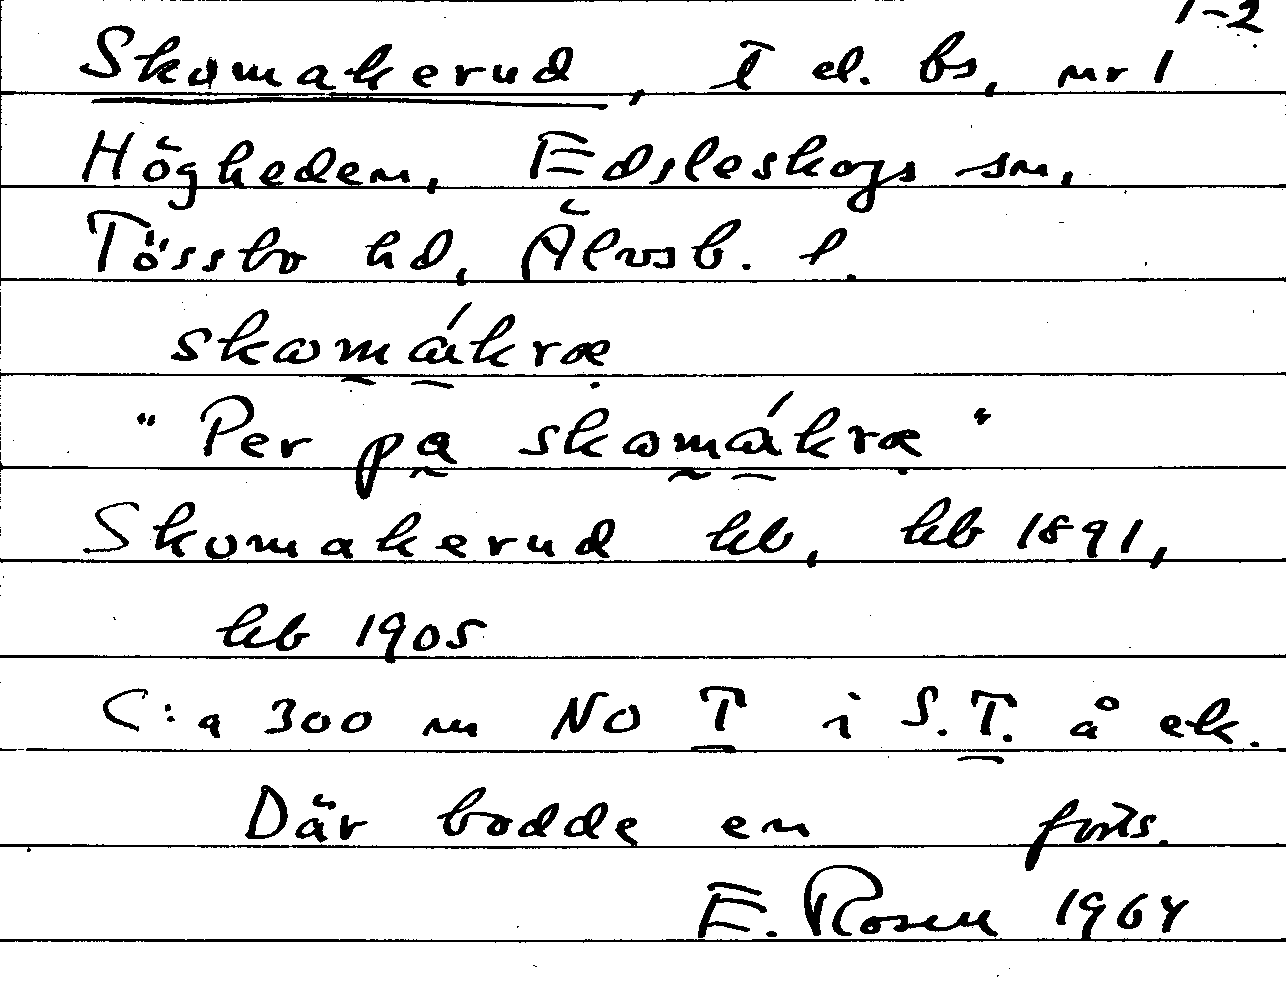 1-2
Skomakerud, T el. bs, nr 1
Högheden, Edsleskogs sn,
Tössbo hd, Älvsb. l.
skomákræ
"Per pa skomákræ"
Skomakerud hb, hb 1891,
hb 1905
C:a 300 m NO T i S.T. å ek.
Där bodde en forts.
E. Rosen 1964